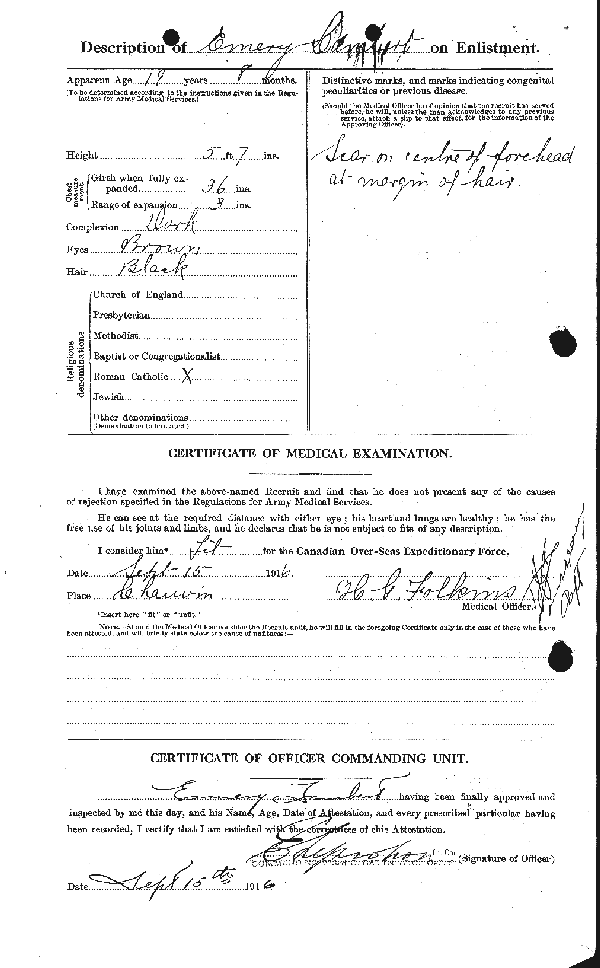 Description of Emery on Enlistment.
Apparent Age 19 years 8 months.
(To be determined according to the instructions given in the Regulations for Army Medical Services.)
Height 5 ft. 7 ins.
Chest measurement
Girth when fully expanded 36 ins.
Range of expansion 3 ins.
Complexion
Eyes Brown
Hair Black
Religious denominations
Church of England
Presbyterian
Methodist
Baptist or Congregationalist
Roman Catholic X
Jewish
Other denominations
(Denomination to be stated.)
Distinctive marks, and marks indicating congenital
peculiarities or previous disease.
(Should the Medical Officer be of opinion that the recruit has served
before, he will, unless the man acknowledges to any previous
service, attach a slip to that effect, for the information of the
Approving Officer).
Scar on centre of forehead
at margin of hair.
CERTIFICATE OF MEDICAL EXAMINATION.
I have examined the above-named Recruit and find that he does not present any of the causes
of rejection specified in the Regulations for Army Medical Services.
He can see at the required distance with either eye; his heart and lungs are healthy; he has the
free use of his joints and limbs, and he declares that he is not subject to fits of any description.
I consider him* fit for the Canadian Over-Seas Expeditionary Force.
Date Sept 15 1916
Place H G Folkins
Medical Officer.
*Insert here "fit" or "unfit."
NOTE.—Should the Medical Officer consider the Recruit unfit, he will fill in the foregoing Certificate only in the case of those who have
been attested, and will briefly state below the cause of unfitness:—
CERTIFICATE OF OFFICER COMMANDING UNIT.
Emery having been finally approved and
inspected by me this day, and his Name, Age, Date of Attestation, and every prescribed particular having
been recorded, I certify that I am satisfied with the correctness of this Attestation.
(Signature of Officer)
Date Sept 15th 1916